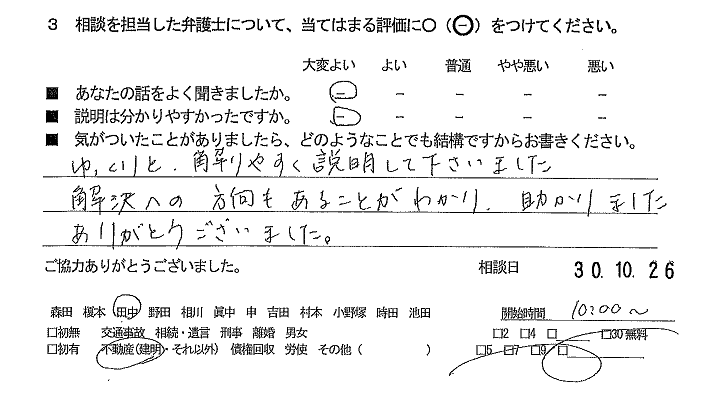 3 相談を担当した弁護士について、当てはまる評価に○（⊖）をつけてください。
大変よい よい 普通 やや悪い 悪い
■ あなたの話をよく聞きましたか。 － － － － －
■ 説明は分かりやすかったですか。 － － － － －
■ 気がついたことがありましたら、どのようなことでも結構ですからお書きください。
ゆっくりと、解りやすく説明して下さいました
解決への方向もあることがわかり、助かりました
ありがとうございました。
ご協力ありがとうございました。 相談日 30.10.26
森田 榎本 田中 野田 相川 眞中 申 吉田 村本 小野塚 時田 池田 開始時間 10:00～
□初無 交通事故 相続・遺言 刑事 離婚 男女 □2 □4 □ □30無料
□初有 不動産（建明・それ以外） 債権回収 労使 その他（ ） □5 □7 □9 □